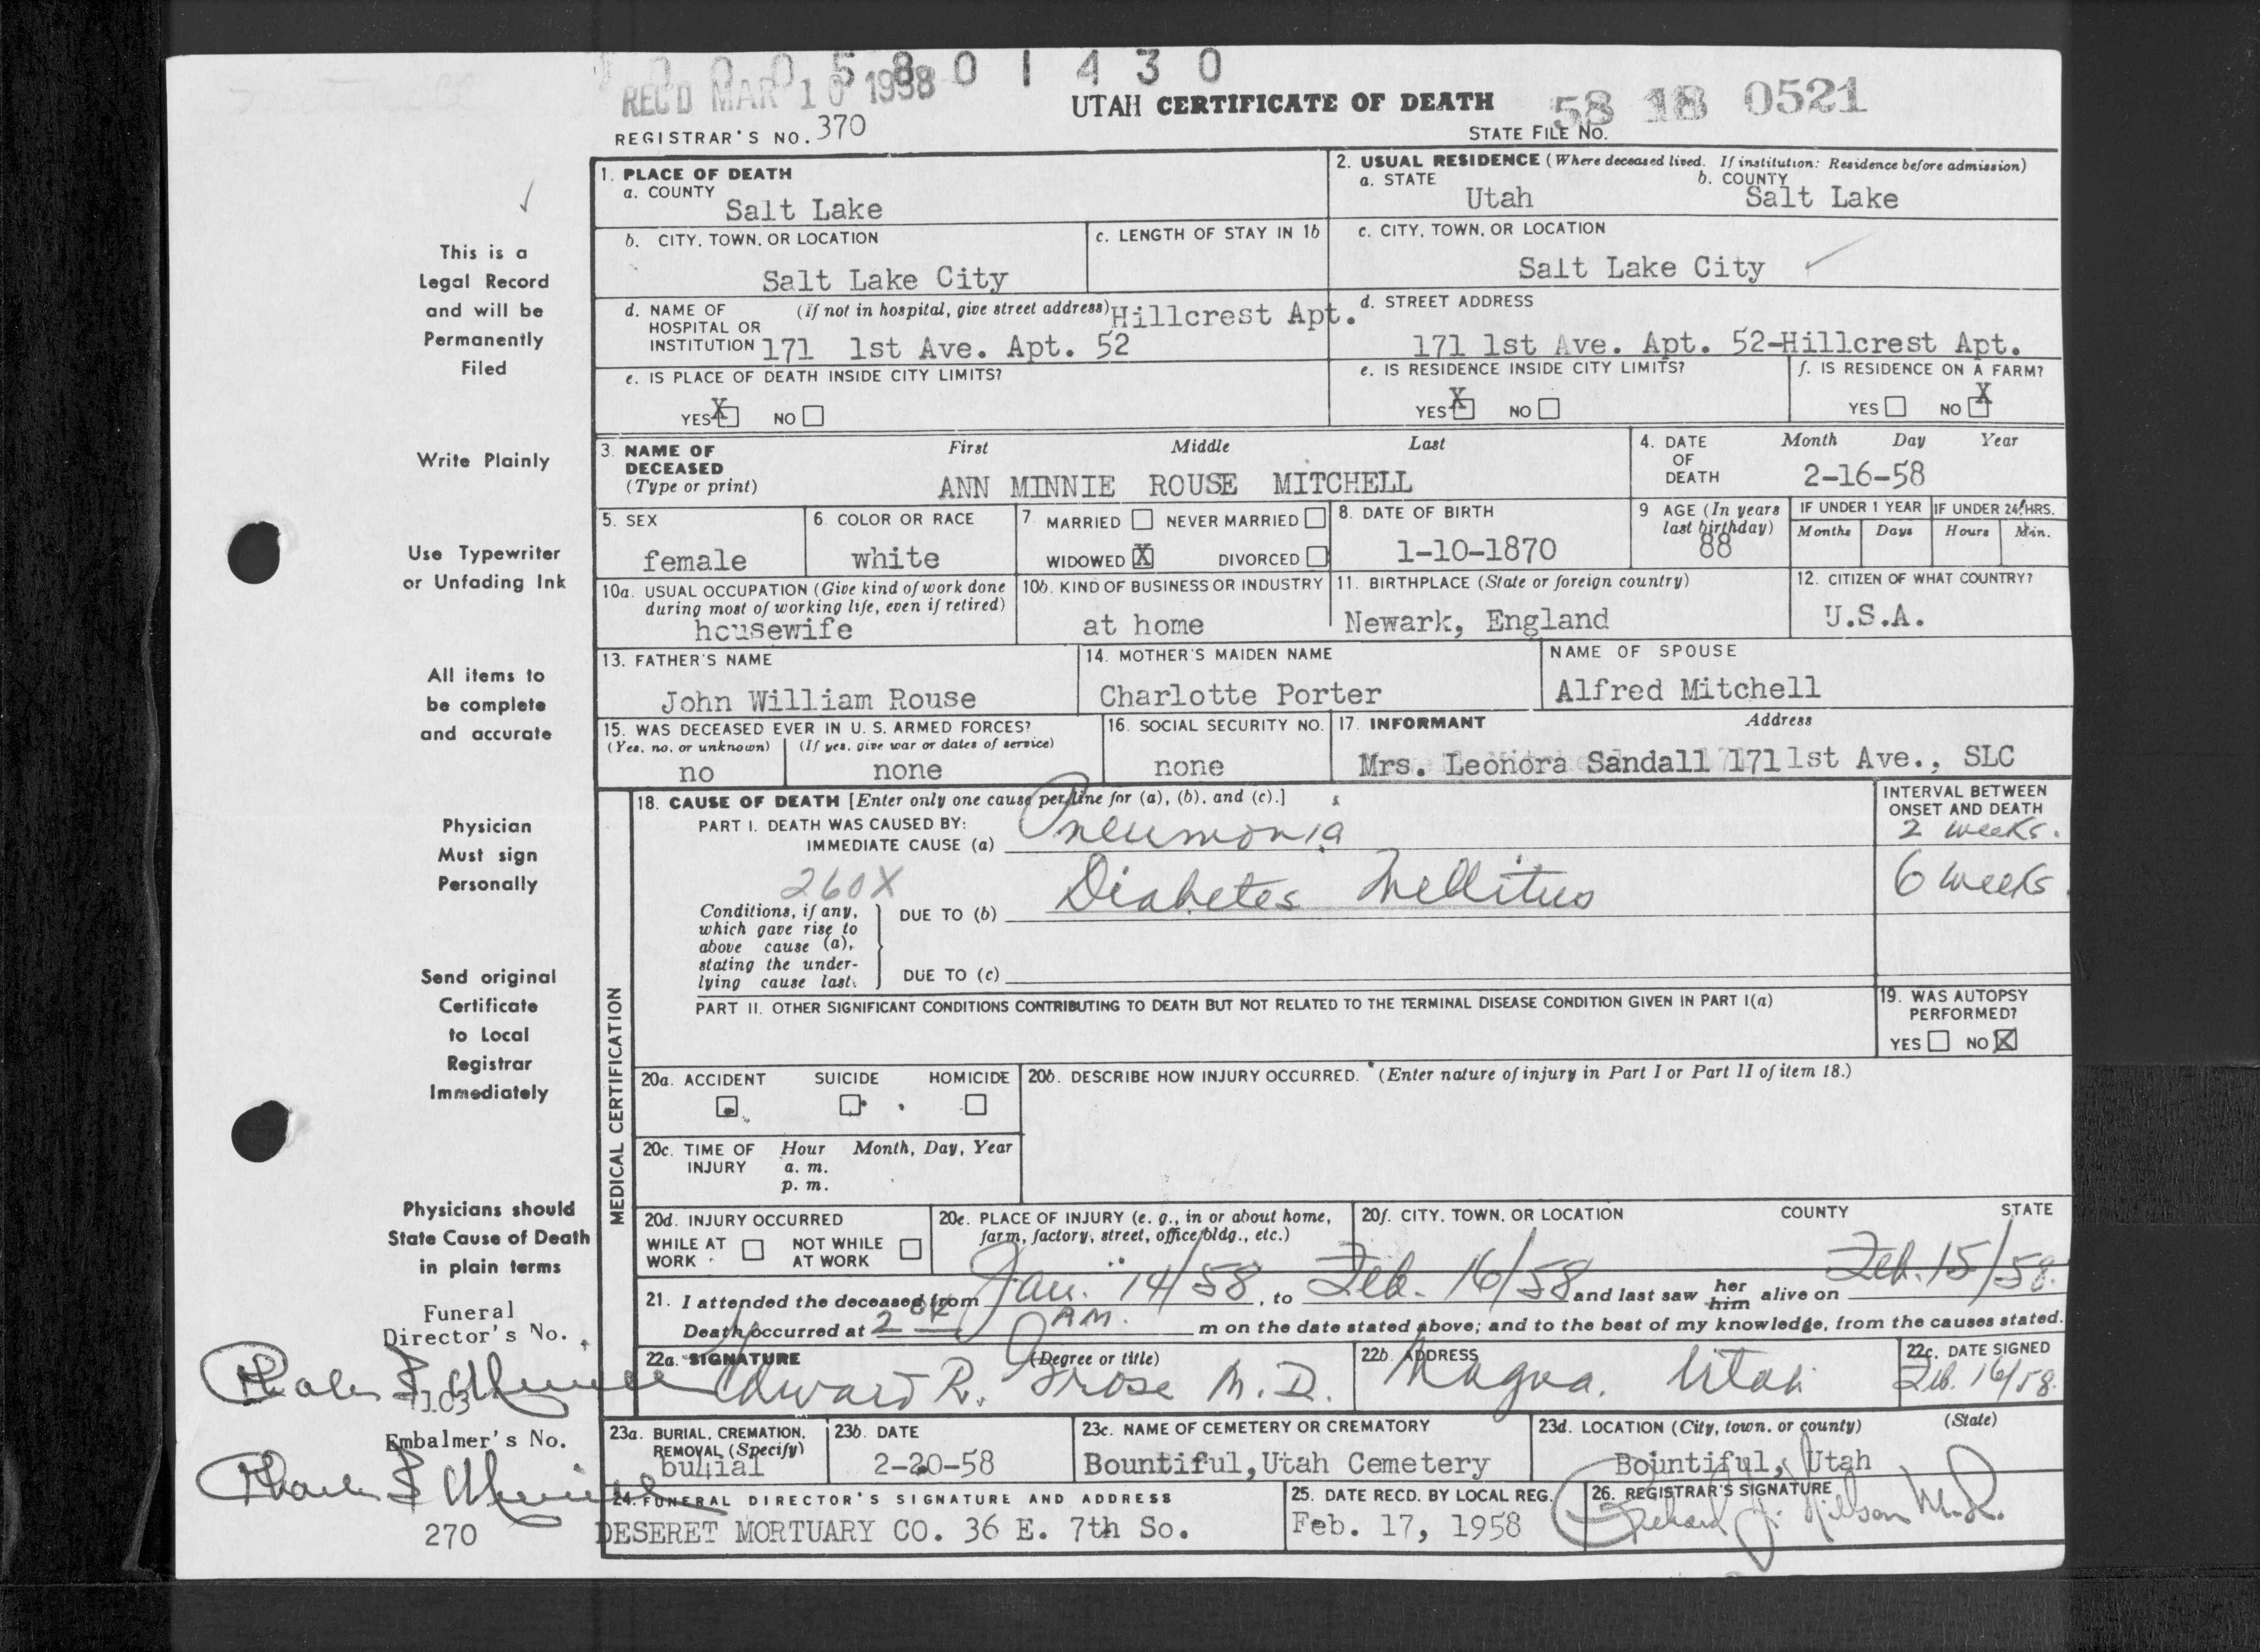 0 0 0 5 8 0 1 4 3 0
REC'D MAR 10 1958
UTAH CERTIFICATE OF DEATH
58 18 0521
REGISTRAR'S NO. 370
STATE FILE NO.
1. PLACE OF DEATH
a. COUNTY
Salt Lake
2. USUAL RESIDENCE (Where deceased lived. If institution: Residence before admission)
a. STATE b. COUNTY
Utah Salt Lake
b. CITY, TOWN, OR LOCATION
Salt Lake City
c. LENGTH OF STAY IN 1b
c. CITY, TOWN, OR LOCATION
Salt Lake City
d. NAME OF (If not in hospital, give street address) Hillcrest Apt.
HOSPITAL OR
INSTITUTION 171 1st Ave. Apt. 52
d. STREET ADDRESS
171 1st Ave. Apt. 52-Hillcrest Apt.
e. IS PLACE OF DEATH INSIDE CITY LIMITS?
YES X NO
e. IS RESIDENCE INSIDE CITY LIMITS?
YES X NO
f. IS RESIDENCE ON A FARM?
YES NO X
3. NAME OF DECEASED (Type or print)
First Middle Last
ANN MINNIE ROUSE MITCHELL
4. DATE OF DEATH
Month Day Year
2-16-58
5. SEX
female
6. COLOR OR RACE
white
7. MARRIED NEVER MARRIED
WIDOWED X DIVORCED
8. DATE OF BIRTH
1-10-1870
9 AGE (In years last birthday)
88
IF UNDER 1 YEAR
Months Days
IF UNDER 24 HRS.
Hours Min.
10a. USUAL OCCUPATION (Give kind of work done
during most of working life, even if retired)
housewife
10b. KIND OF BUSINESS OR INDUSTRY
at home
11. BIRTHPLACE (State or foreign country)
Newark, England
12. CITIZEN OF WHAT COUNTRY?
U.S.A.
13. FATHER'S NAME
John William Rouse
14. MOTHER'S MAIDEN NAME
Charlotte Porter
NAME OF SPOUSE
Alfred Mitchell
15. WAS DECEASED EVER IN U. S. ARMED FORCES?
(Yes, no, or unknown) (If yes, give war or dates of service)
no none
16. SOCIAL SECURITY NO.
none
17. INFORMANT Address
Mrs. Leonora Sandall 171 1st Ave., SLC
MEDICAL CERTIFICATION
18. CAUSE OF DEATH [Enter only one cause per line for (a), (b), and (c).]
PART I. DEATH WAS CAUSED BY:
IMMEDIATE CAUSE (a) Pneumonia
INTERVAL BETWEEN
ONSET AND DEATH
2 weeks.
260X
Conditions, if any,
which gave rise to
above cause (a),
stating the under-
lying cause last.
DUE TO (b) Diabetes Mellitus
6 weeks.
DUE TO (c)
PART II. OTHER SIGNIFICANT CONDITIONS CONTRIBUTING TO DEATH BUT NOT RELATED TO THE TERMINAL DISEASE CONDITION GIVEN IN PART I(a)
19. WAS AUTOPSY
PERFORMED?
YES NO X
20a. ACCIDENT SUICIDE HOMICIDE
20b. DESCRIBE HOW INJURY OCCURRED. (Enter nature of injury in Part I or Part II of item 18.)
20c. TIME OF INJURY
Hour Month, Day, Year
a. m.
p. m.
20d. INJURY OCCURRED
WHILE AT WORK NOT WHILE AT WORK
20e. PLACE OF INJURY (e. g., in or about home,
farm, factory, street, office bldg., etc.)
20f. CITY, TOWN, OR LOCATION COUNTY STATE
21. I attended the deceased from Jan. 14/58, to Feb. 16/58 and last saw her him alive on Feb. 15/58.
Death occurred at 2 04 A.M. m on the date stated above; and to the best of my knowledge, from the causes stated.
22a. SIGNATURE (Degree or title)
Edward R. Grose M. D.
22b. ADDRESS
Magna. Utah
22c. DATE SIGNED
Feb. 16/58.
23a. BURIAL, CREMATION,
REMOVAL (Specify)
burial
23b. DATE
2-20-58
23c. NAME OF CEMETERY OR CREMATORY
Bountiful,Utah Cemetery
23d. LOCATION (City, town, or county) (State)
Bountiful, Utah
24. FUNERAL DIRECTOR'S SIGNATURE AND ADDRESS
DESERET MORTUARY CO. 36 E. 7th So.
25. DATE RECD. BY LOCAL REG.
Feb. 17, 1958
26. REGISTRAR'S SIGNATURE
This is a
Legal Record
and will be
Permanently
Filed
Write Plainly
Use Typewriter
or Unfading Ink
All items to
be complete
and accurate
Physician
Must sign
Personally
Send original
Certificate
to Local
Registrar
Immediately
Physicians should
State Cause of Death
in plain terms
Funeral
Director's No.
1103
Embalmer's No.
270